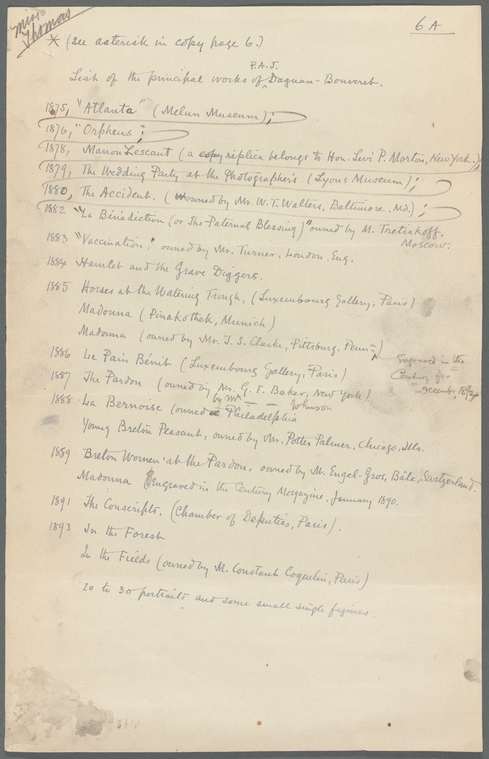 Miss
Thomas
6A
* (see asterisk in copy page 6.)
P.A.J.
List of the principal works of Dagnan-Bouveret.
1875, "Atlanta" (Melun Museum);
1876, "Orpheus";
1878, Manon Lescaut (a copy replica belongs to Hon. Levi P. Morton, New York.);
1879, The Wedding Party at the Photographer's (Lyons Museum);
1880, The Accident. (owned by Mr. W. T. Walters, Baltimore. Md.);
1882 "La Bénédiction (or The Paternal Blessing)" owned by M. Tretiakoff.
Moscow.
1883 "Vaccination," owned by Mr. Turner, London, Eng.
1884 Hamlet and the Grave Diggers.
1885 Horses at the Watering Trough. (Luxembourg Gallery, Paris)
Madonna (Pinakothek, Munich)
Madonna (owned by Mr. T. S. Clarke, Pittsburg, Penn.)
Engraved in the
Century for
December,
1886 Le Pain Bénit (Luxembourg Gallery, Paris)
1887 The Pardon (owned by Mr. G. F. Baker, New York)
by Mr. Johnson
1888 La Bernoise (owned Philadelphia
Young Breton Peasant, owned by Mr. Potter Palmer, Chicago, Ills.
1889 Breton Women at the Pardon, owned by M. Engel-Gros, Bâle, Switzerland.
Madonna Engraved in the Century Magazine, January 1890.
1891 The Conscripts. (Chamber of Deputies, Paris).
1893 In the Forest
In the Fields (owned by M. Constant Coquelin, Paris)
20 to 30 portraits and some small single figures.